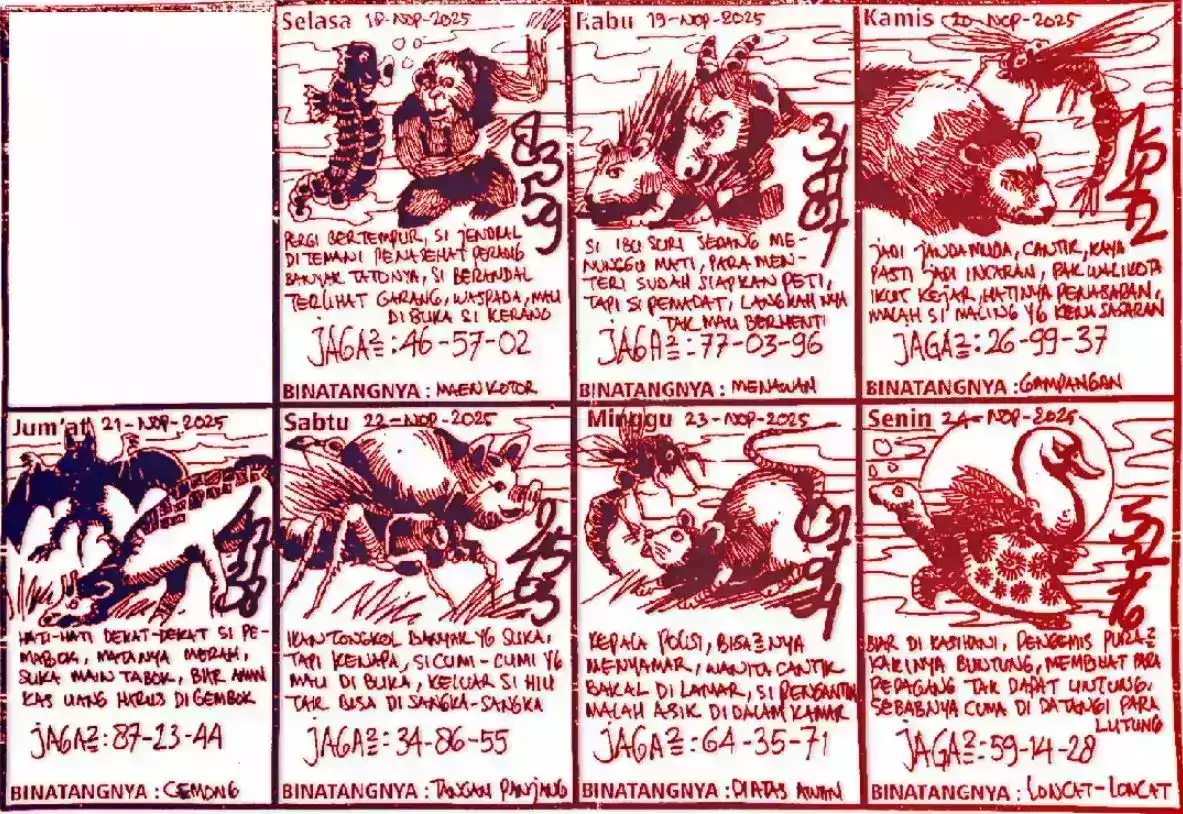 Selasa 18-NOP-2025
83
59
PERGI BERTEMPUR, SI JENDRAL
DITEMANI PENASEHAT PERANG
BANYAK TATONYA, SI BERANDAL
TERLIHAT GARANG, WASPADA, MAU
DIBUKA SI KERANG
JAGA2=:46-57-02
BINATANGNYA : MAEN KOTOR
Rabu 19-NOP-2025
SI IBU SURI SEDANG ME-
NUNGGU MATI, PARA MEN-
TERI SUDAH SIAPKAN PETI,
TAPI SI PEMADAT, LANGKAHNYA
TAK MAU BERHENTI
JAGA2=:77-03-96
BINATANGNYA : MENAWAN
Kamis 20-NOP-2025
15
42
JADI JANDA MUDA, CANTIK, KAYA
PASTI JADI INCARAN, PAK WALIKOTA
IKUT KEJAR, HATINYA PENASARAN,
MALAH SI MALING YG KENA SASARAN
JAGA2=:26-99-37
BINATANGNYA : GAMPANGAN
Jum'at 21-NOP-2025
38
HATI-HATI DEKAT-DEKAT SI PE-
MABOK, MATANYA MERAH,
SUKA MAIN TABOK, BIAR AMAN
KAS UANG HARUS DI GEMBOK
JAGA2=:87-23-44
BINATANGNYA : CEMONG
Sabtu 22-NOP-2025
IKAN TONGKOL BANYAK YG SUKA,
TAPI KENAPA, SI CUMI-CUMI YG
MAU DI BUKA, KELUAR SI HIU
TAK BISA DI SANGKA-SANGKA
JAGA2=:34-86-55
BINATANGNYA : TANGAN PANJANG
Minggu 23-NOP-2025
07
94
KEPALA POLISI, BISA2NYA
MENYAMAR, WANITA CANTIK
BAKAL DI LAMAR, SI PENGANTIN
MALAH ASIK DIDALAM KAMAR
JAGA2=:64-35-71
BINATANGNYA : DIATAS AWAN
Senin 24-NOP-2025
52
76
BIAR DI KASIHANI, PENGEMIS PURA2
KAKINYA BUNTUNG, MEMBUAT PARA
PEDAGANG TAK DAPAT UNTUNG,
SEBABNYA CUMA DI DATANGI PARA
LUTUNG
JAGA2=:59-14-28
BINATANGNYA : LONCAT-LONCAT